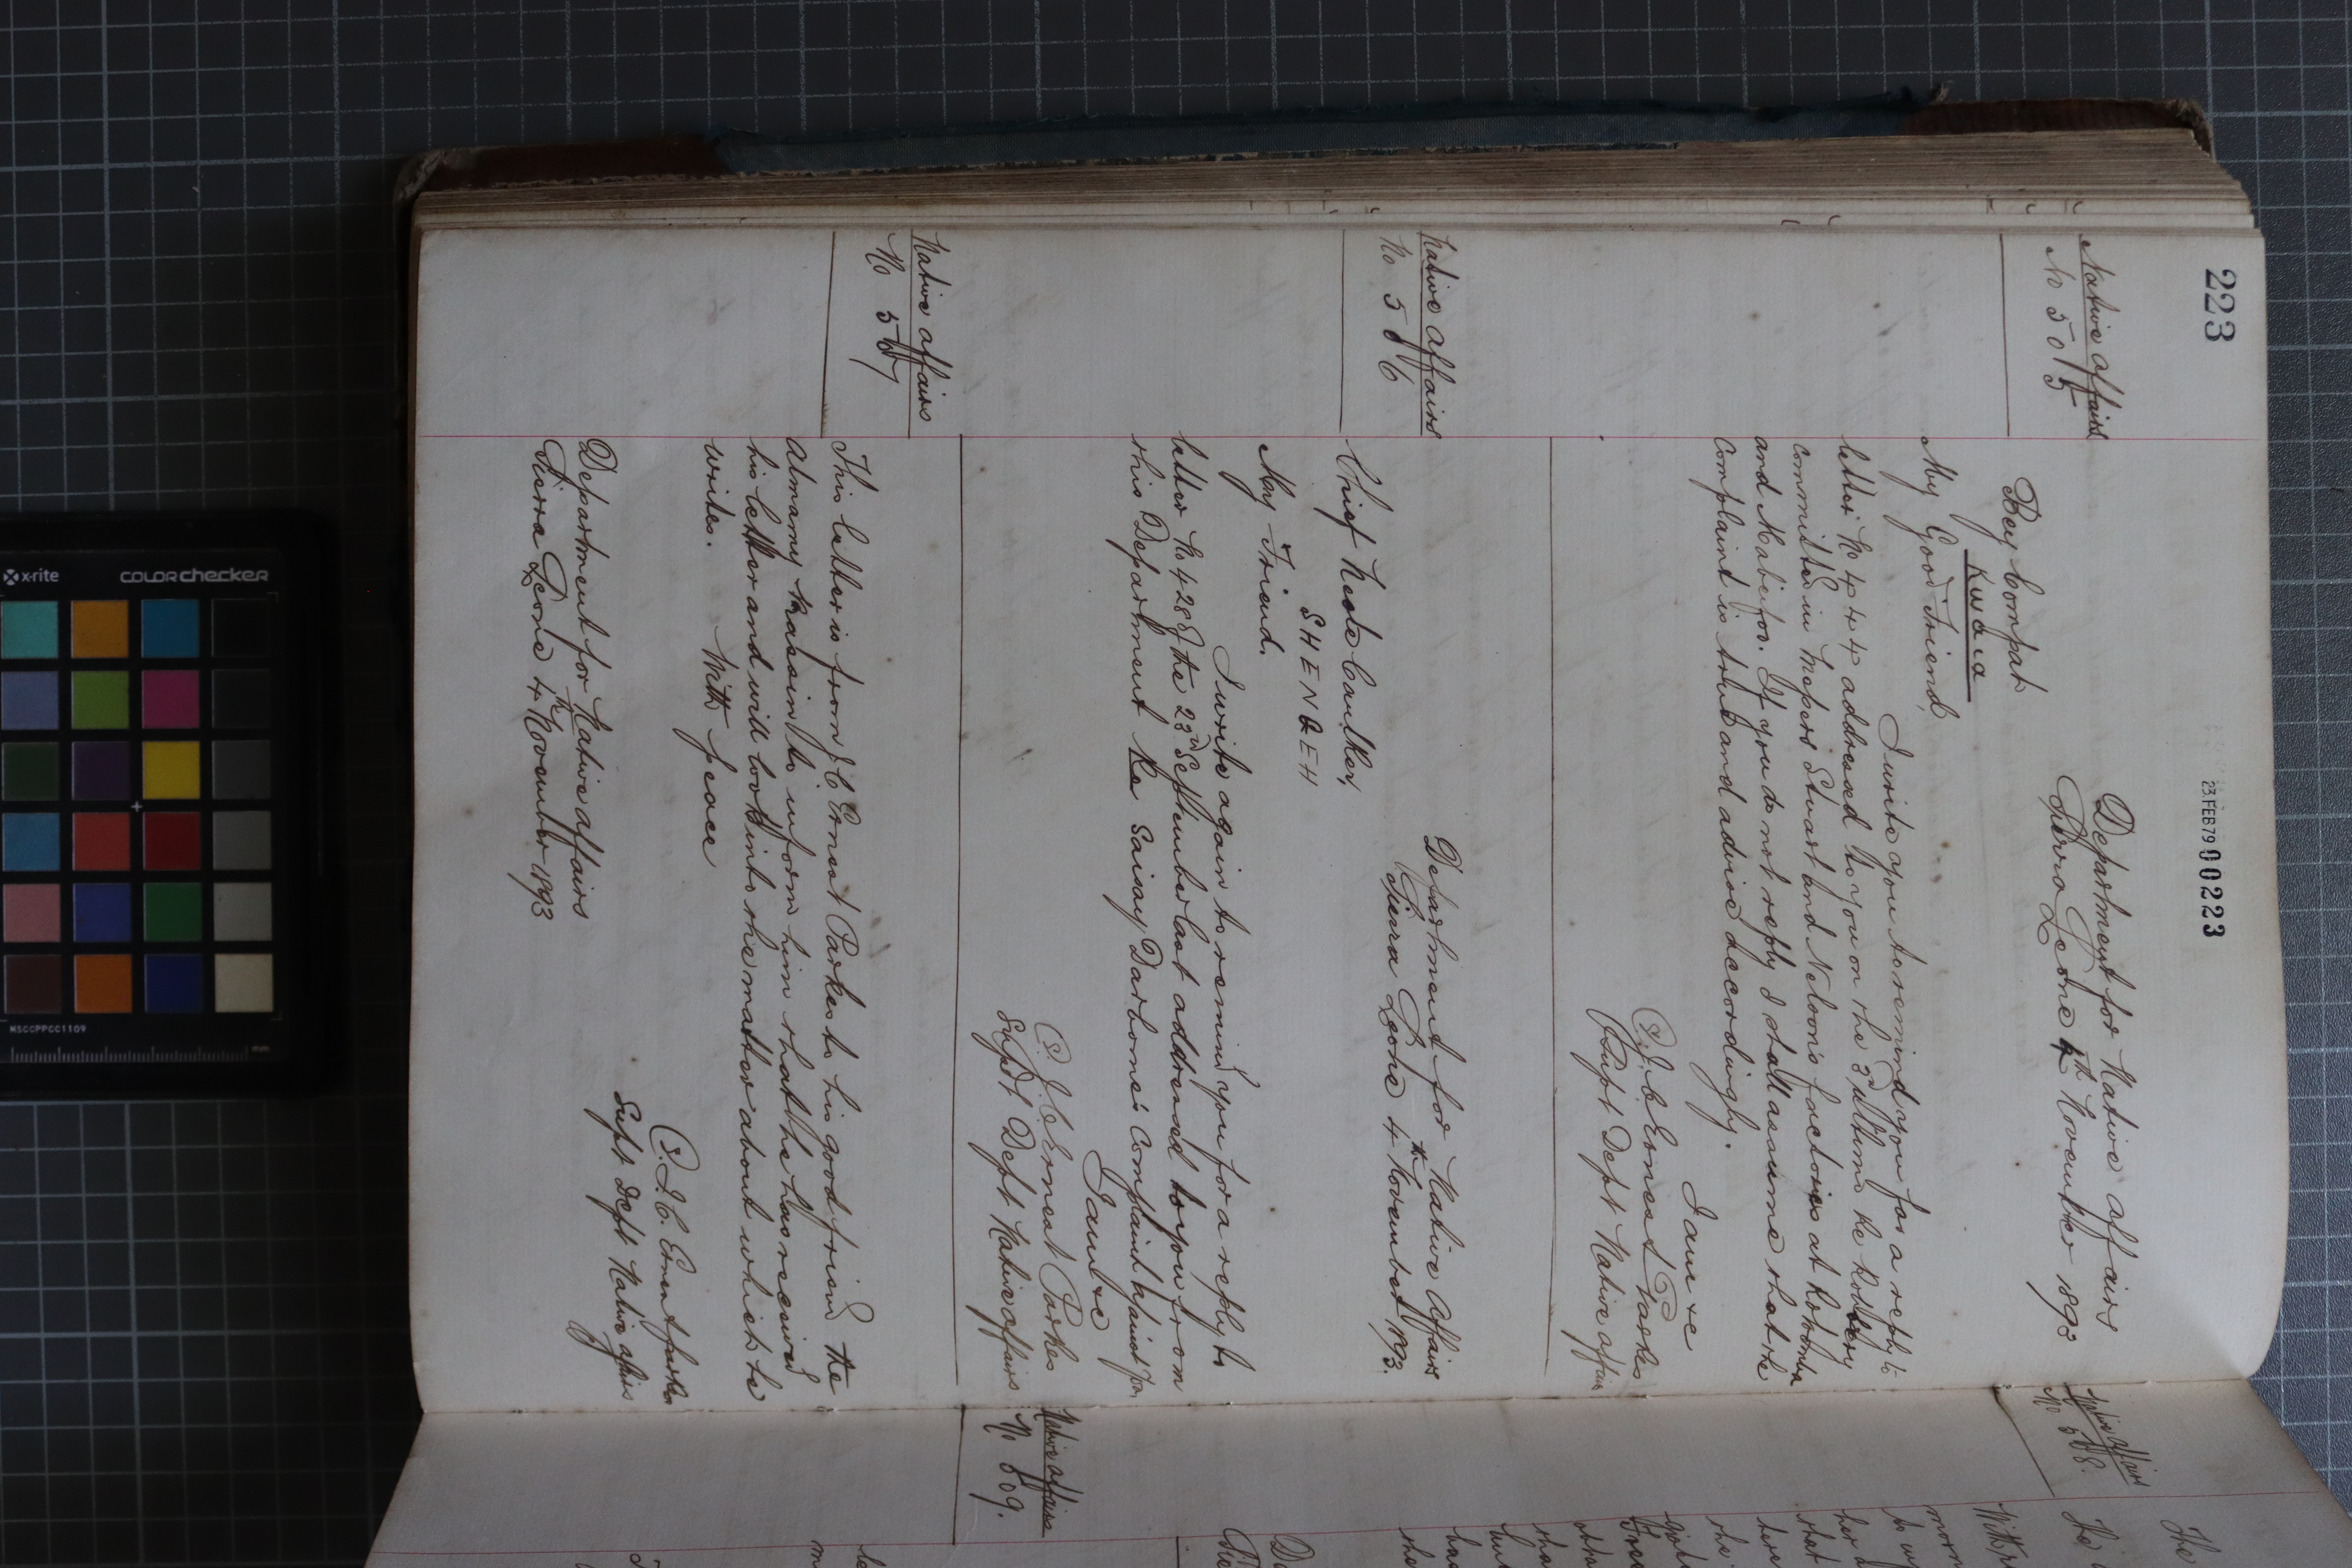 223
23 FEB 79 00223
Native Affairs
No 505
Department for Native Affairs
Sierra Leone 4th November 1893
Bey Compah
Kwaia
My Good Friend,
I write you to remind you for a reply to
letter No 444 addressed to you on the 3rd ultimo re robbery
committed in Messrs Stuart and Nelson's factories at
and Mabeifoo. If you do not reply I shall assume that the
complaint is true and advise accordingly.
I am &c
(S) J. C. Ernest Parkes
Supt Dept Native Affairs
Native Affairs
No 506
Department for Native Affairs
Sierra Leone 4th November 1893.
Chief Neale Caulker,
SHENGEH
My Friend.
I write again to remind you for a reply to
letter No 428 of the 23rd September last addressed to you from
this Department re Saisay Darbome's complaint against you
I am &c
(S) J. C. Ernest Parkes
Supt Dept Native Affairs
Native Affairs
No 507
This letter is from J. C. Ernest Parkes to his good friend the
Almamy to inform him that he has received
his letter and will look into the matter about which he
writes. With peace
(S) J. C. Ernest Parkes
Supt Dept Native Affairs
Department for Native Affairs
Sierra Leone 4th November 1893
Native Affairs
No 508.
Native Affairs
No 509.
x-rite
colorchecker
MSCCPPCC1109
mm